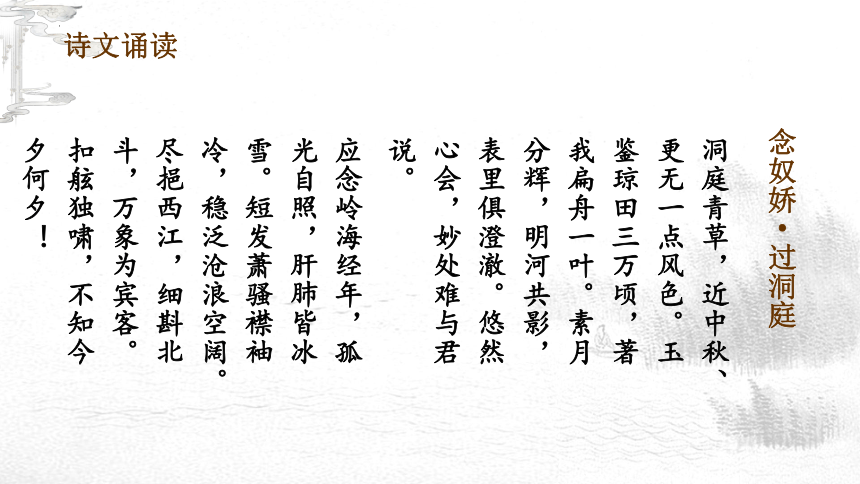 诗文诵读
念奴娇·过洞庭
洞庭青草，近中秋、
更无一点风色。玉
鉴琼田三万顷，著
我扁舟一叶。素月
分辉，明河共影，
表里俱澄澈。悠然
心会，妙处难与君
说。
应念岭海经年，孤
光自照，肝肺皆冰
雪。短发萧骚襟袖
冷，稳泛沧浪空阔。
尽挹西江，细斟北
斗，万象为宾客。
扣舷独啸，不知今
夕何夕！